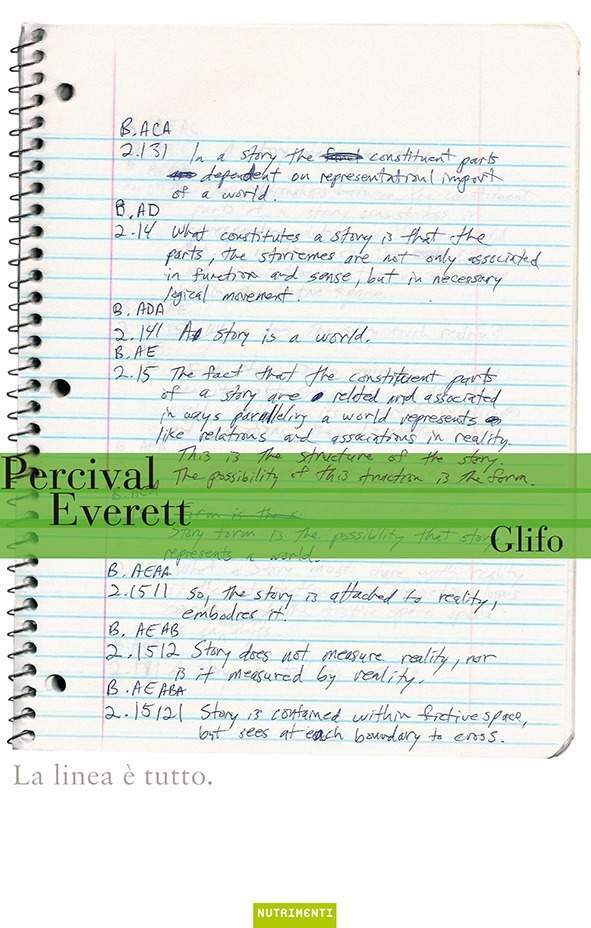 B. ACA
2.131 In a story the constituent parts
dependent on representational import
of a world.
B. AD
2.14 What constitutes a story is that the
parts, the storiemes are not only associated
in function and sense, but in necessary
logical movement.
B. ADA
2.141 A story is a world.
B. AE
2.15 The fact that the constituent parts
of a story are related and associated
in ways paralleling a world represents
like relations and associations in reality.
This is the structure of the story.
The possibility of this truction is the form.
Percival
Everett
Form is the
Story form is the possiblity that story
represents a world.
Glifo
B. AEAA
2.1511 So, the story is attached to reality,
embodies it.
B. AEAB
2.1512 Story does not measure reality, nor
is it measured by reality.
B. AEABA
2.15121 Story is contained within fictive space,
but sees at each boundary to cross.
La linea è tutto.
NUTRIMENTI